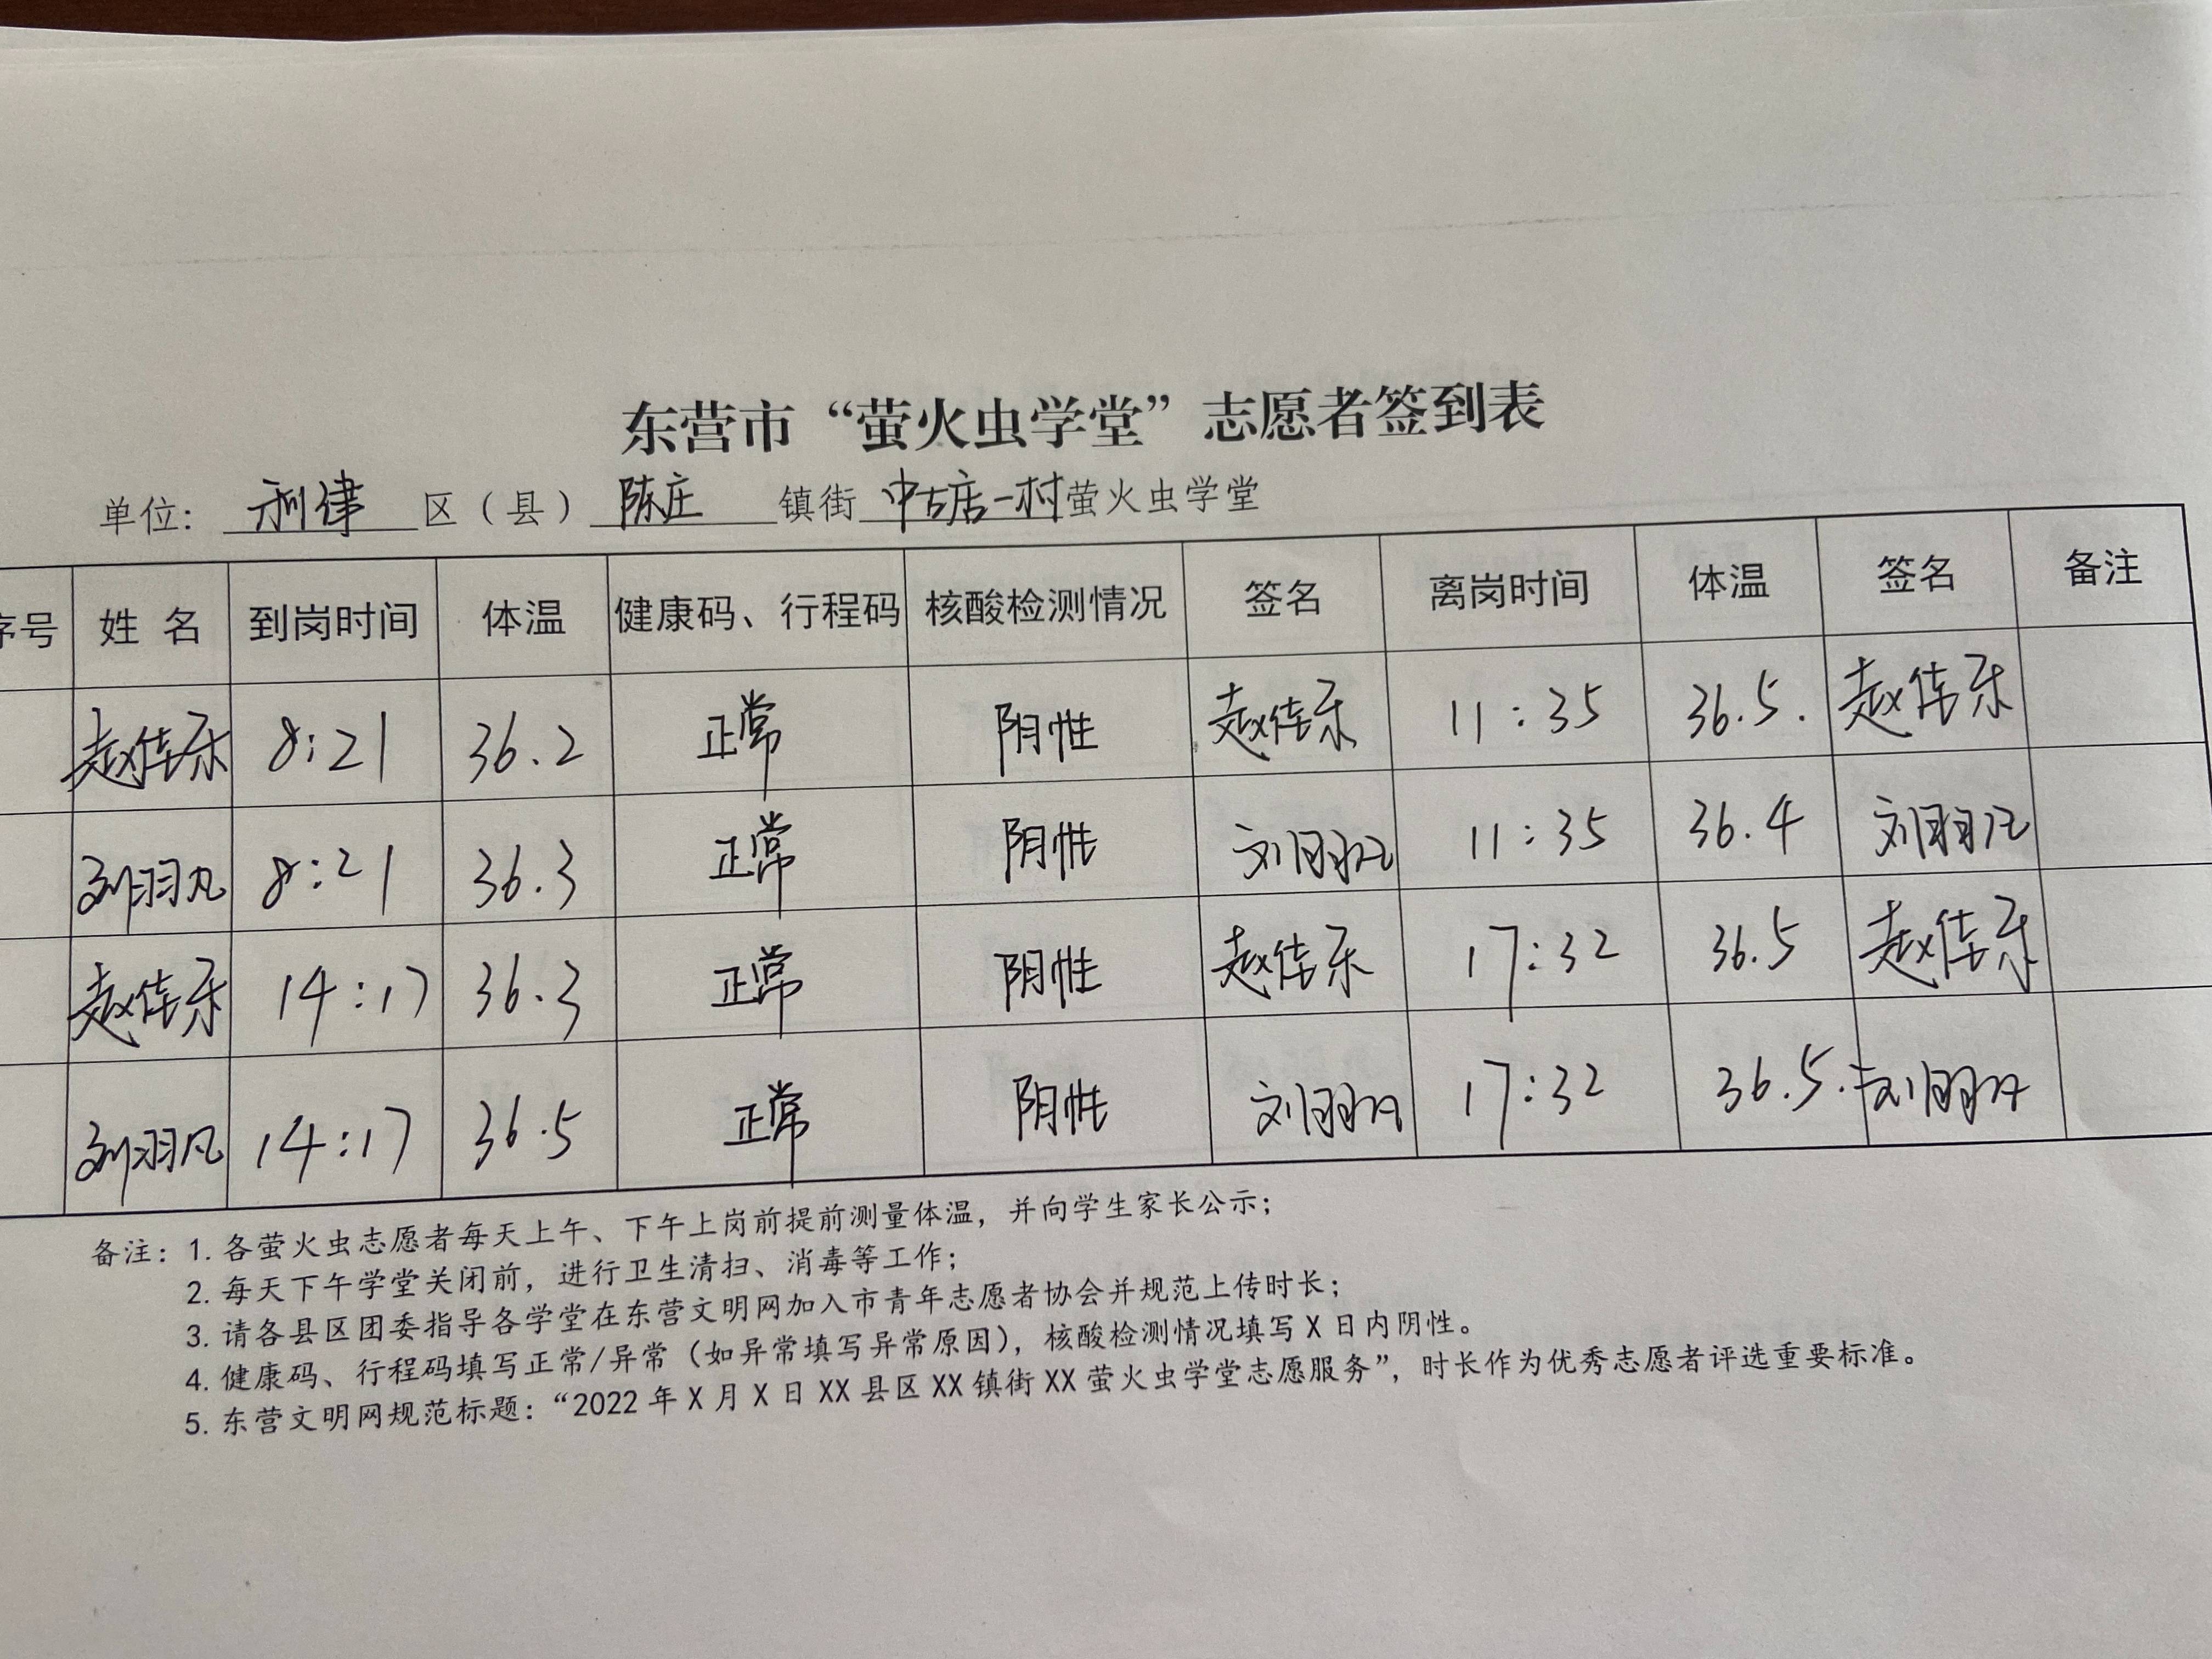 东营市“萤火虫学堂”志愿者签到表
单位: 利津 区(县) 陈庄 镇街 中古店一村 萤火虫学堂
序号 姓 名 到岗时间 体温 健康码、行程码 核酸检测情况 签名 离岗时间 体温 签名 备注
赵佳乐 8:21 36.2 正常 阴性 赵佳乐 11:35 36.5. 赵佳乐
刘羽凡 8:21 36.3 正常 阴性 刘羽凡 11:35 36.4 刘羽凡
赵佳乐 14:17 36.3 正常 阴性 赵佳乐 17:32 36.5 赵佳乐
刘羽凡 14:17 36.5 正常 阴性 刘羽凡 17:32 36.5. 刘羽凡
备注: 1. 各萤火虫志愿者每天上午、下午上岗前提前测量体温，并向学生家长公示；
2. 每天下午学堂关闭前，进行卫生清扫、消毒等工作；
3. 请各县区团委指导各学堂在东营文明网加入市青年志愿者协会并规范上传时长；
4. 健康码、行程码填写正常/异常（如异常填写异常原因），核酸检测情况填写 X 日内阴性。
5. 东营文明网规范标题：“2022 年 X 月 X 日 XX 县区 XX 镇街 XX 萤火虫学堂志愿服务”，时长作为优秀志愿者评选重要标准。